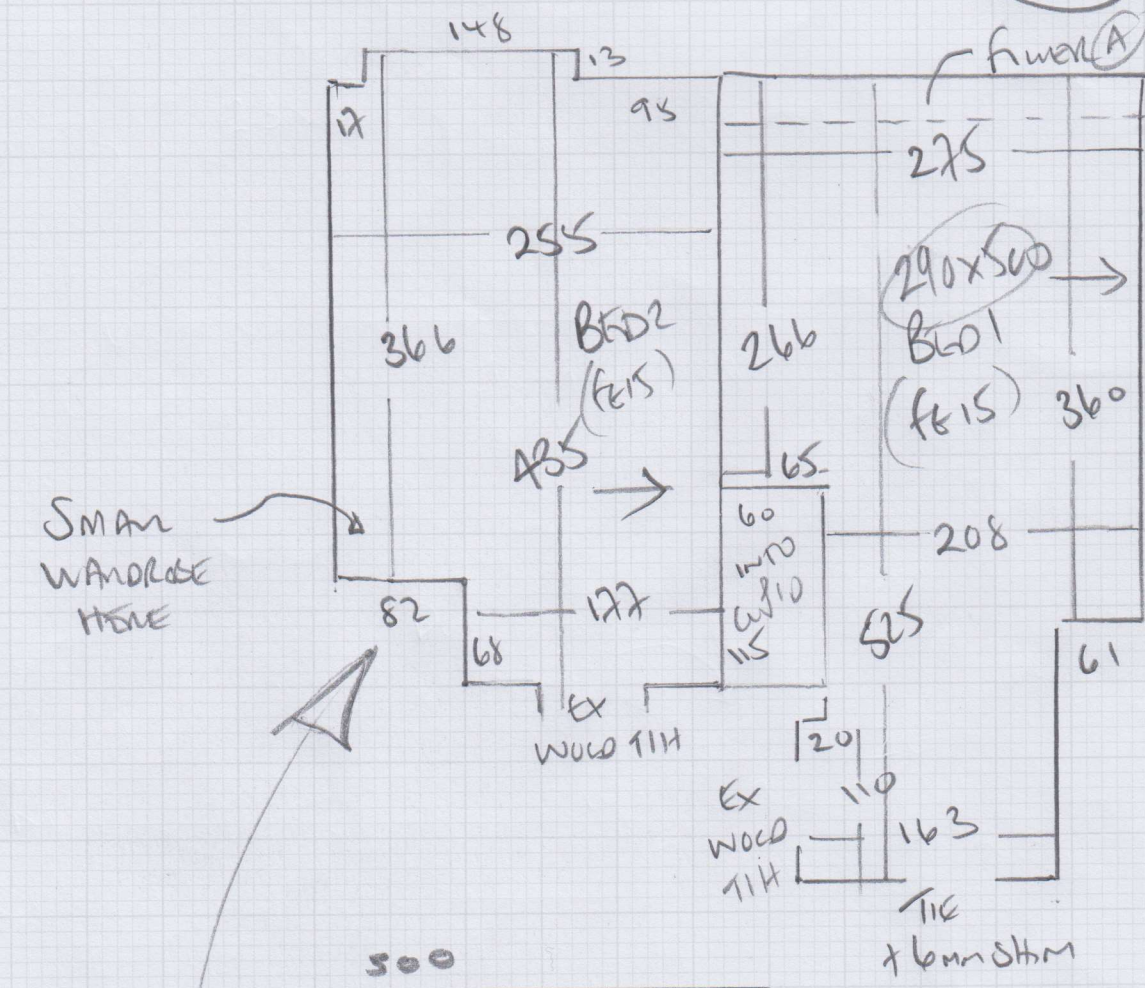 148
13
FILLER (A)
17
95
275
255
290x500
BED 2
366
266
BED 1
(FE15)
(FE15)
360
435
65
SMALL
WARDROBE
HERE
60
INTO
CUP'D
115
208
82
177
68
525
61
EX
WOOD T/H
20
110
EX
WOOD
T/H
163
T/K
+ 6mm SHIM
500